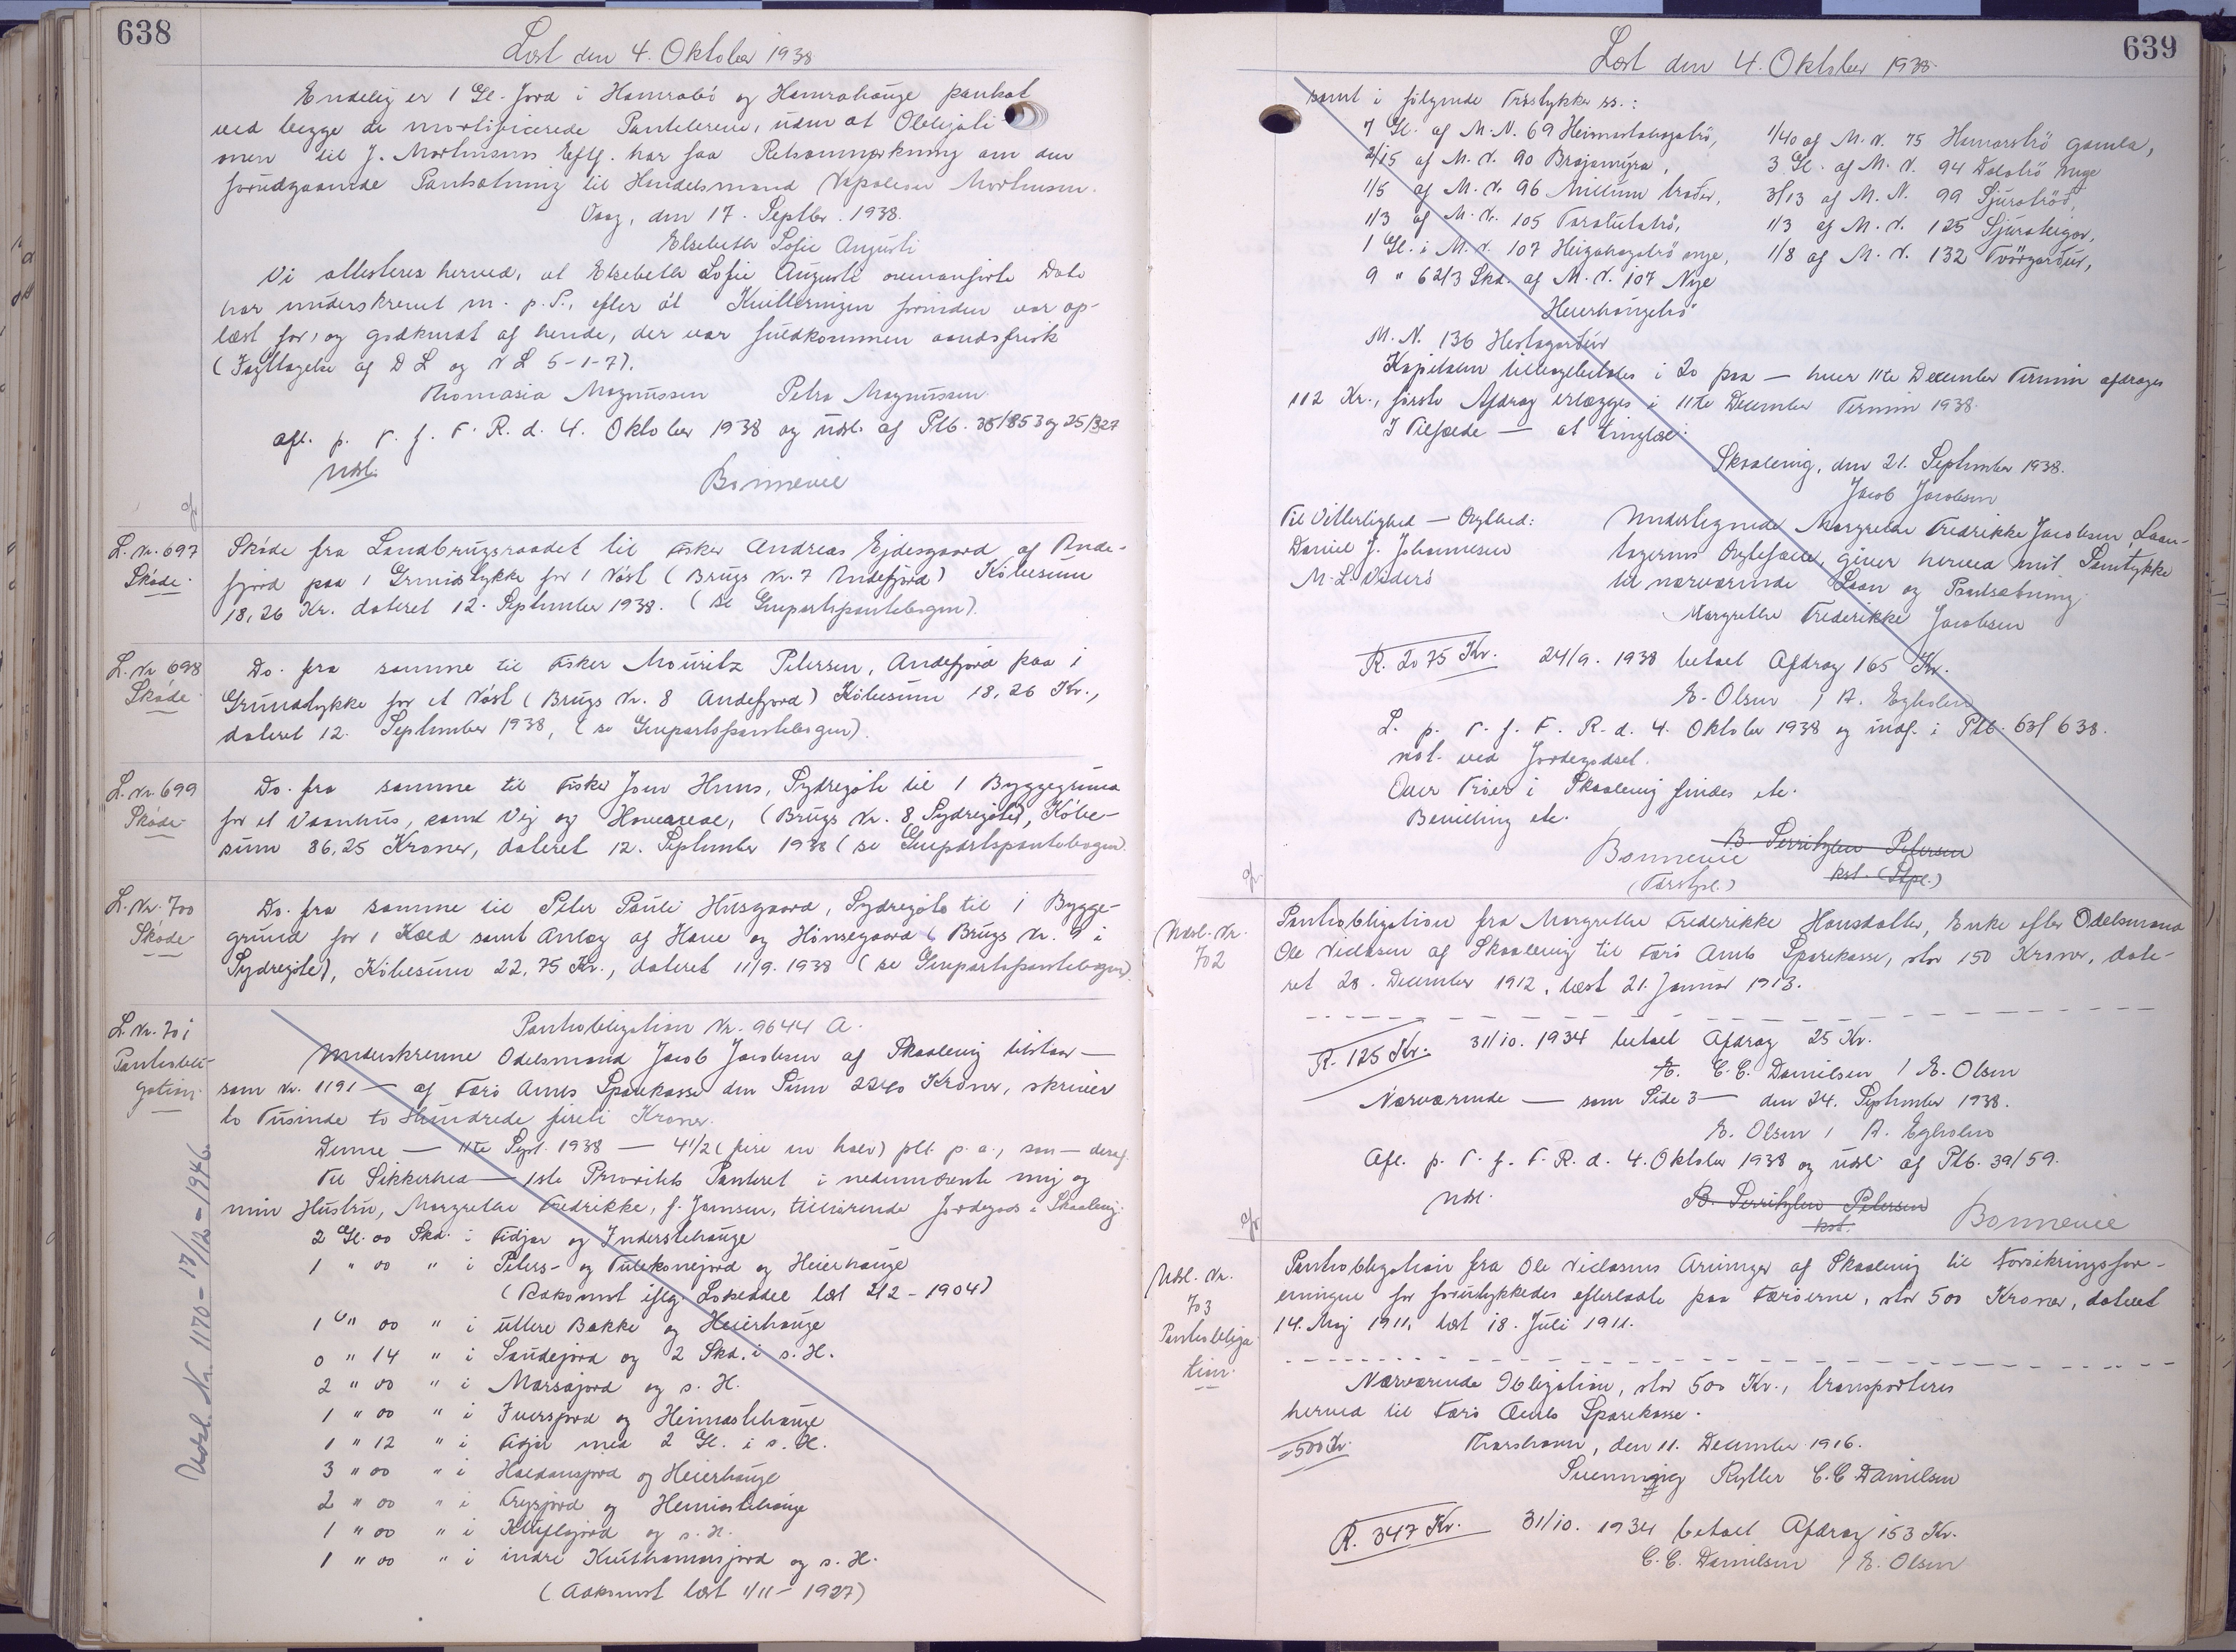 638
Læst den 4. Oktober 1938
Endelig er 1 Gl. Jord i Hamrabö og Hamrahauge pantsat
ved begge de mortificerede Pantebreve, uden at Obligati
onen til J. Mortensens Eftf. har faa Retsanmærkning om den
forudgaaende Pantsætning til Handelsmand Napoleon Mortensen.
Vaag, den 17. Septbr. 1938.
Elsebeth Sofie Augusti
Vi attesteres herved, at Elsebeth Sofie Augusti ovenanførte Dato
har underskrevet m. p. P., efter at Kvitteringen forinden var op-
læst for, og godkendt af hende, der var fuldkommen aandsfrisk
(Iagttagelse af D L og N L 5-1-7).
Thomasia Magnussen Petra Magnussen
Afl. p. T. f. F. R. d. 4. Oktober 1938 og udsl. af Ptb. 35/853 og 25/327
Udsl. Bonnevie
L. Nr. 697
Skøde.
Skøde fra Landbrugsraadet til Fisker Andreas Ejdesgaard af Ande-
fjord paa 1 Grundstykke for 1 Nöst (Brugs Nr. 7 Andefjord) Købesum
18,26 Kr. dateret 12. September 1938. (se Genpartspantebogen).
L. Nr 698
Skøde.
Do. fra samme til Fisker Mouritz Petersen, Andefjord paa 1
Grundstykke for et Nöst (Brugs Nr. 8 Andefjord) Købesum 18,26 Kr.,
dateret 12. September 1938, (se Genpartspantebogen).
L. Nr. 699
Skøde
Do. fra samme til Fisker Joen Hans, Sydregøte til 1 Byggegrund
for et Vaanhus, samt Vej og Haveareal, (Brugs Nr. 8 Sydregøte), Købe-
sum 86,25 Kroner, dateret 12. September 1938 (se Genpartspantebogen)
L. Nr. 700
Skøde
Do. fra samme til Peter Pauli Husgaard, Sydregøte til 1 Bygge-
grund for 1 Kæld samt Anlæg af Have og Hønsegaard (Brugs Nr. 9 i
Sydregøte), Købesum 22,75 Kr., dateret 11/9. 1938 (se Genpartspantebogen).
L. Nr. 701
Pantobli-
gation.
Pantobligation Nr. 9644 A.
Underskrevne Odelsmand Jacob Jacobsen af Skaalevig tilstaar —
som Nr. 1191 — af Færö Amts Sparekasse den Sum 2240 Kroner, skriver
to Tusinde to Hundrede fireti Kroner.
Denne — 11te Sept. 1938 — 4 1/2 (fire en halv) pCt. p. a., som — deraf.
Til Sikkerhed — 1ste Prioritets Panteret i nedennævnte mig og
min Hustru, Margrethe Fredrikke, f. Jansen, tilhørende Jordegods i Skaalevig:
2 Gl. 00 Skd. i Fidjar og Inderstehauge
1 " 00 " i Peters- og Tulekonejord og Heierhauge
(Adkomst iflg. Lokeddel læst 2/2 - 1904)
1 " 00 " i uttere Bakke og Heierhauge
0 " 14 " i Saudejord og 2 Skd. i s. H.
2 " 00 " i Marsajord og s. H.
1 " 00 " i Iversjord og Heimastehauge
1 " 12 " i Fidjar med 2 Gl. i s. H.
3 " 00 " i Haldansjord og Heierhauge
2 " 00 " i Freysjord og Heimastehauge
1 " 00 " i Kluftsjord og s. H.
1 " 00 " i indre Kuthamarsjord og s. H.
(Adkomst læst 1/11 - 1927)
Udsl. Nr. 1170 - 17/12 - 1946.
639
Læst den 4. Oktober 1938
samt i følgende Trøstykker ss.:
7 Gl. af M. N. 69 Heimastahagatrö, 1/40 af M. N. 75 Hamarströ gamla,
2/15 af M. N. 90 Brajamÿra, 3 Gl. af M. N. 94 Dalatrö nuge
1/5 af M. N. 96 Millum trader, 3/13 af M. N. 99 Sjúrströð,
1/3 af M. N. 105 Taratutatrö, 1/3 af M. N. 125 Sjurateigar,
1 Gl. i M. N. 107 Heigahagatrö nye, 1/8 af M. N. 132 Tvörgardur,
9 " 6 2/3 Skd. af M. N. 107 Nye
Heierhaugetrö
M. N. 136 Hestagardur
Kapitalen tilbagebetales i 20 paa — hver 11te December Termin afdrages
112 Kr., første Afdrag erlægges i 11te December Termin 1938.
I Tilfælde — at tinglæse.
Skaalevig, den 21. September 1938.
Jacob Jacobsen
Til Vitterlighed — Ægthed:
Daniel J. Johannesen
M. L. Viderö
Undertegnede Margrethe Fredrikke Jacobsen, Laan-
tagerens Ægtefælle, giver herved mit Samtykke
til nærværende Laan og Pantsætning.
Margrethe Frederikke Jacobsen
R. 2075 Kr. 24/9. 1938 betalt Afdrag 165 Kr.
E. Olsen / A. Egholm
L. p. T. f. F. R. d. 4. Oktober 1938 og indf. i Ptb. 63/638.
not. ved Jordegodset.
Over Trøer i Skaalevig findes etc.
Bevilling etc.
B. Serritzlew Petersen
kst. (Stpl.)
Bonnevie
(Tarstpl.)
Udsl. Nr.
702
Pantobligation fra Margrethe Frederikke Hansdatter, Enke efter Odelsmand
Ole Niclasen af Skaalevig til Færö Amts Sparekasse, stor 150 Kroner, date-
ret 28. December 1912, læst 21. Januar 1913.
R. 125 Kr. 31/10. 1934 betalt Afdrag 25 Kr.
C. C. Danielsen / E. Olsen
Nærværende — som Side 3 — den 24. September 1938.
E. Olsen / A. Egholm
Afl. p. T. f. F. R. d. 4. Oktober 1938 og udsl. af Ptb. 39/59.
Udsl. B. Serritzlew Petersen
kst. Bonnevie
Udsl. Nr.
703
Pantobliga
tion.
Pantobligation fra Ole Niclasens Arvinger af Skaalevig til Forsikringsfor-
eningen for forulykkedes efterladte paa Færöerne, stor 500 Kroner, dateret
14. Maj 1911, læst 18. Juli 1911.
Nærværende Obligation, stor 500 Kr., transporteres
herved til Færö Amts Sparekasse.
500 Kr. Thorshavn, den 11. December 1916.
Svenning Rytter C. C. Danielsen
R. 347 Kr. 31/10. 1934 betalt Afdrag 153 Kr.
C. C. Danielsen / E. Olsen